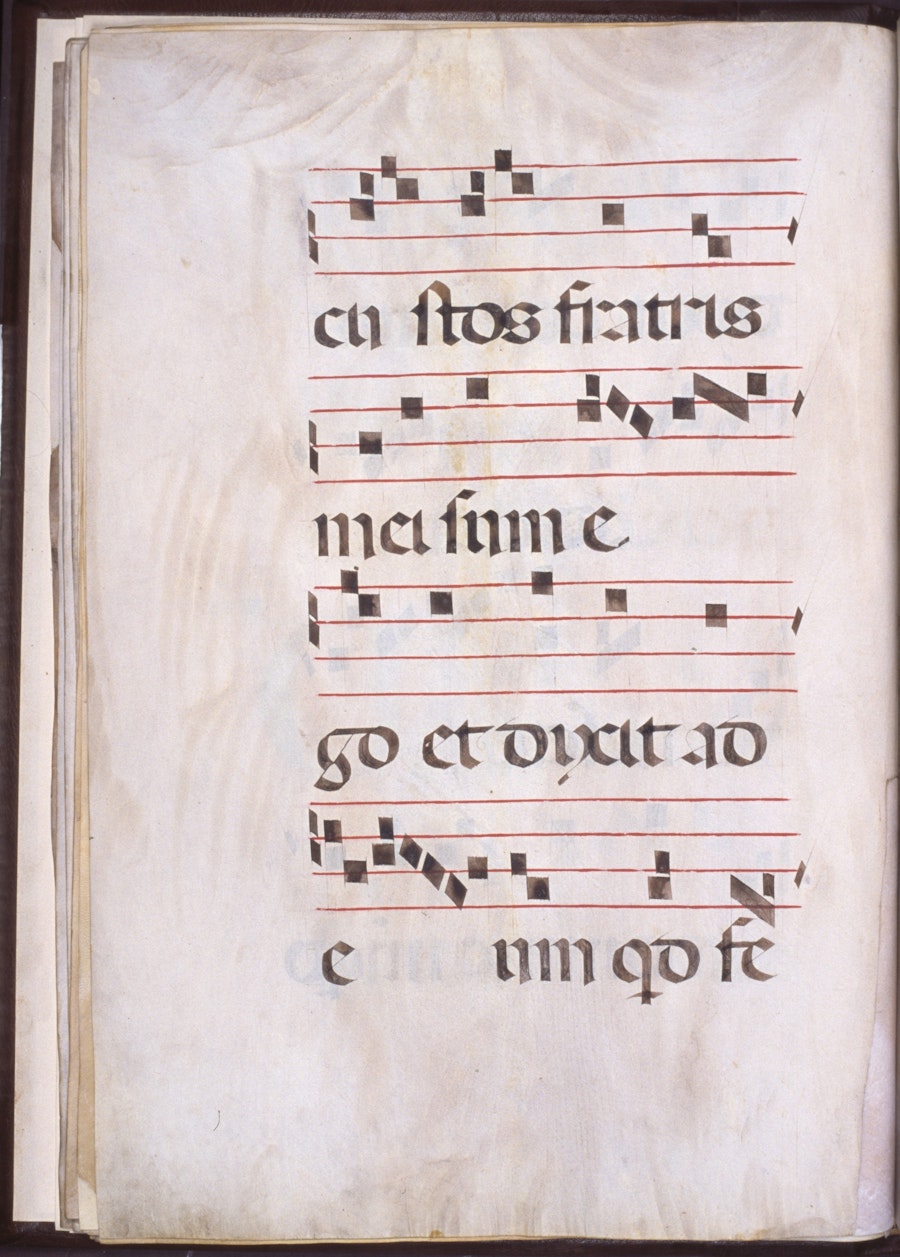 cu stos fratris
mei sum e
go et dixit ad
e um qd fe